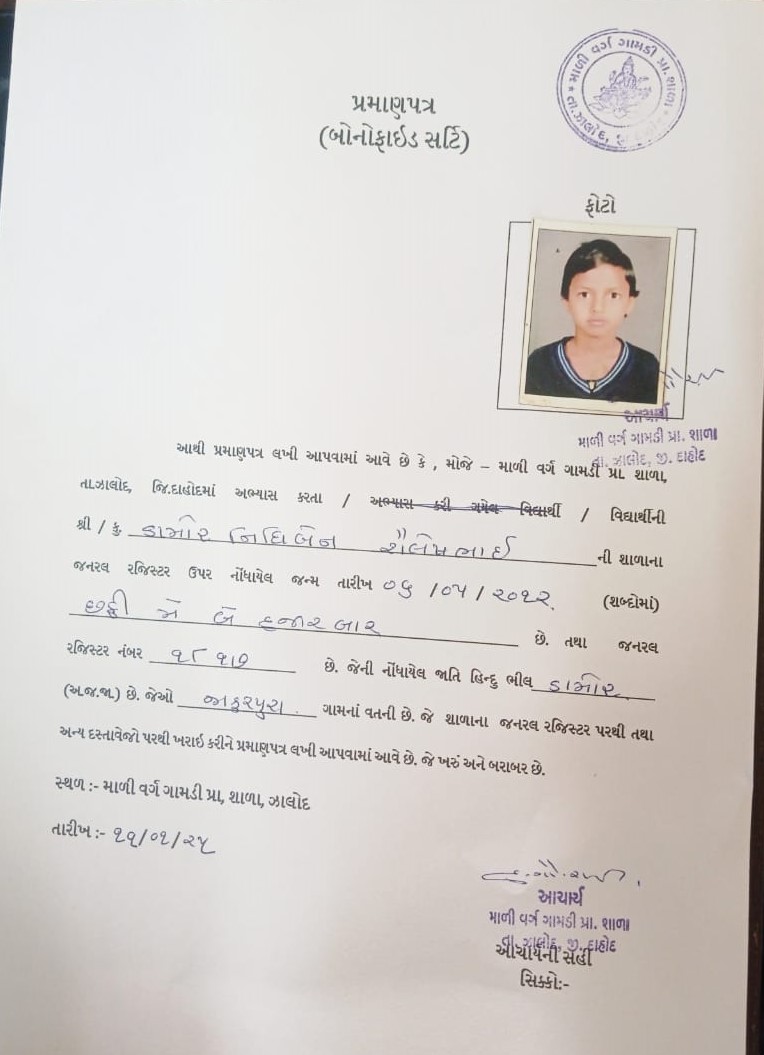 માળી વર્ગ ગામડી પ્રા. શાળા
તા. ઝાલોદ,
પ્રમાણપત્ર
(બોનોફાઇડ સર્ટિ)
ફોટો
આચાર્ય
માળી વર્ગ ગામડી પ્રા. શાળા
તા. ઝાલોદ, જી. દાહોદ
આથી પ્રમાણપત્ર લખી આપવામાં આવે છે કે , મોજે – માળી વર્ગ ગામડી પ્રા. શાળા,
તા.ઝાલોદ, જિ.દાહોદમાં અભ્યાસ કરતા / અભ્યાસ કરી ગયેલ વિદ્યાર્થી / વિદ્યાર્થીની
શ્રી / કુ. ડામોર નિધિબેન શૈલેષભાઈ ની શાળાના
જનરલ રજિસ્ટર ઉપર નોંધાયેલ જન્મ તારીખ ૦૬ /૦૫ / ૨૦૧૨. (શબ્દોમાં)
છઠ્ઠી મે બે હજાર બાર છે. તથા જનરલ
રજિસ્ટર નંબર ૧૮૧૭ છે. જેની નોંધાયેલ જાતિ હિન્દુ ભીલ ડામોર
(અ.જ.જા.) છે. જેઓ ગામનાં વતની છે. જે શાળાના જનરલ રજિસ્ટર પરથી તથા
અન્ય દસ્તાવેજો પરથી ખરાઇ કરીને પ્રમાણપત્ર લખી આપવામાં આવે છે. જે ખરું અને બરાબર છે.
સ્થળ :- માળી વર્ગ ગામડી પ્રા, શાળા, ઝાલોદ
તારીખ :- ૨૫
આચાર્ય
માળી વર્ગ ગામડી પ્રા. શાળા
તા. ઝાલોદ, જી. દાહોદ
આચાર્યની સહી
સિક્કો:-